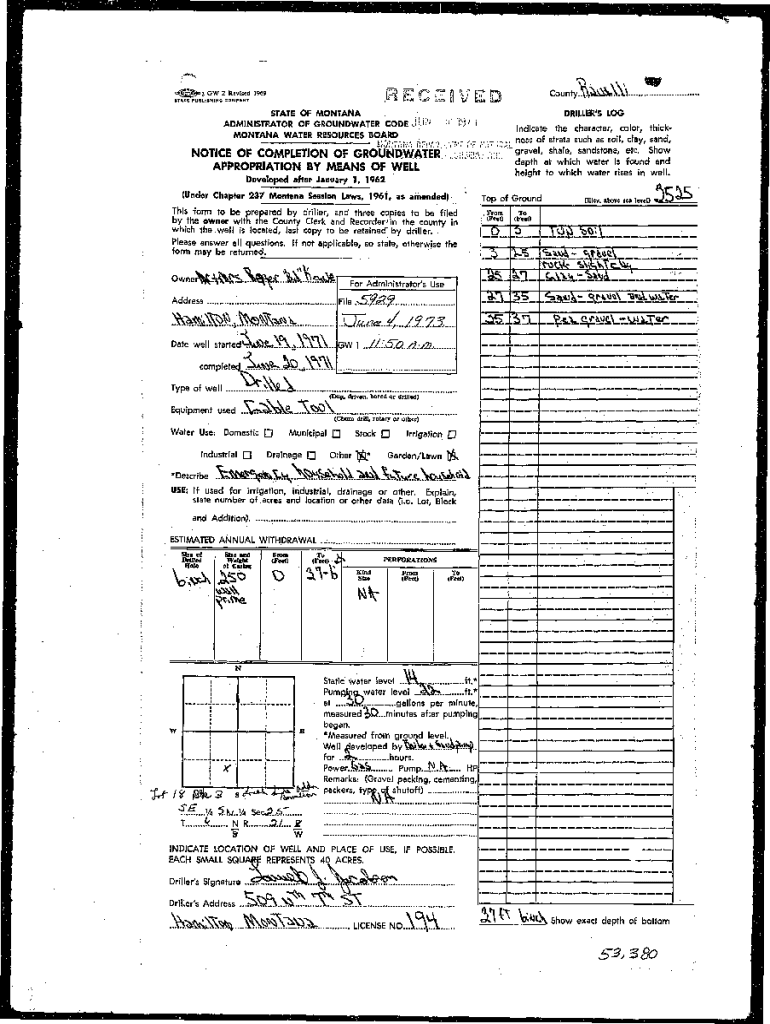 GW 2 Revised 1969
STATE PUBLISHING COMPANY
RECEIVED
County Ravalli
STATE OF MONTANA
ADMINISTRATOR OF GROUNDWATER CODE
MONTANA WATER RESOURCES BOARD
NOTICE OF COMPLETION OF GROUNDWATER
APPROPRIATION BY MEANS OF WELL
Developed after January 1, 1962
(Under Chapter 237 Montana Session Laws, 1961, as amended)
This form to be prepared by driller, and three copies to be filed
by the owner with the County Clerk and Recorder in the county in
which the well is located, last copy to be retained by driller.
Please answer all questions. If not applicable, so state, otherwise the
form may be returned.
Owner
Address
Hamilton, Montana
Date well started June 19, 1971
completed June 20, 1971
For Administrator's Use
File 5929
June 4, 1973
GW 1 11:50 A.M.
Type of well Drilled
(Dug, driven, bored or drilled)
Equipment used Cable Tool
(Churn drill, rotary or other)
Water Use: Domestic Municipal Stock Irrigation
Industrial Drainage Other X* Garden/Lawn X
*Describe Emergency household and future household
USE: If used for irrigation, industrial, drainage or other. Explain,
state number of acres and location or other data (i.e. Lot, Block
and Addition).
ESTIMATED ANNUAL WITHDRAWAL
Size of Drilled Hole
Size and Weight of Casing
From (Feet)
To (Feet)
PERFORATIONS
Kind Size
From (Feet)
To (Feet)
6 inch
250 wall prime
0
37-6
NA
N
W
E
X
Static water level 14 ft.*
Pumping water level ft.*
at 30 gallons per minute,
measured 30 minutes after pumping
began.
*Measured from ground level.
Well developed by
for hours.
Power Gas Pump NA HP
Remarks: (Gravel packing, cementing,
packers, type of shutoff)
NA
Lot 18 Blk 3
SE ¼ SW ¼ Sec 25
T 6 N R 21 E
S W
INDICATE LOCATION OF WELL AND PLACE OF USE, IF POSSIBLE.
EACH SMALL SQUARE REPRESENTS 40 ACRES.
Driller's Signature
Driller's Address 509 ST
Hamilton Montana LICENSE NO. 194
DRILLER'S LOG
Indicate the character, color, thick-
ness of strata such as soil, clay, sand,
gravel, shale, sandstone, etc. Show
depth at which water is found and
height to which water rises in well.
Top of Ground (Elev. above sea level) 3525
From (Feet)
To (Feet)
0 3 Top Soil
3 25 Sand - gravel
rock slight clay
25 27 Clay - Sand
27 35 Sand - gravel and water
35 37 Pea gravel - water
37 FT 6 inch Show exact depth of bottom
53,380